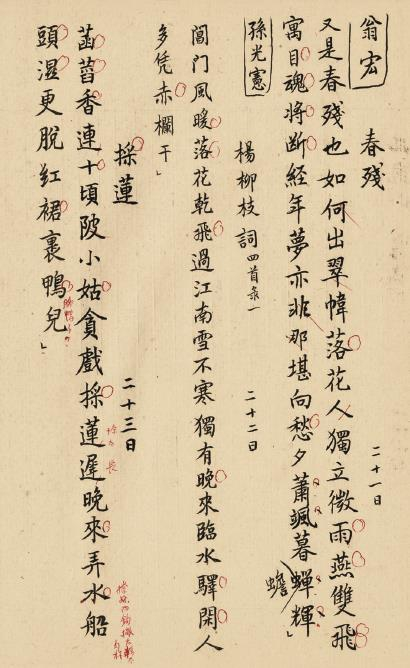 翁宏
春殘
又是春殘也如何出翠幃落花人獨立微雨燕雙飛
二十一日
寓目魂將断経年夢亦非那堪向愁夕蕭颯暮蝉輝」
蟾
孫光憲
楊柳枝詞四首录一
二十二日
閶門風暖落花乾飛過江南雪不寒獨有晚來臨水驛閑人
多凭赤欄干」
採蓮
二十三日
菡萏香連十頃陂小姑貪戲採蓮遲晚來弄水船
頭濕更脱红裙裹鴨兒」